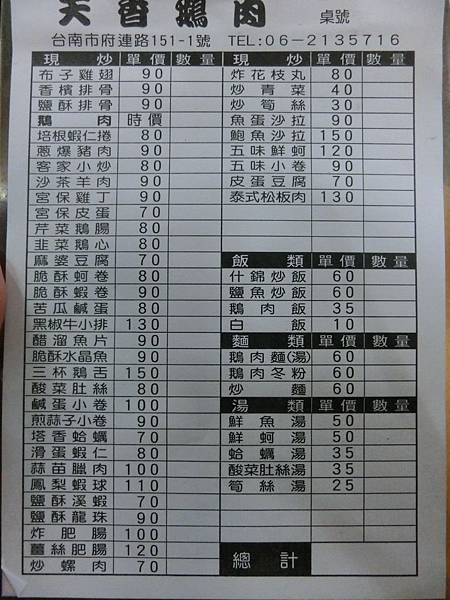 天香鵝肉 桌號
台南市府連路151-1號 TEL:06-2135716
現炒 單價 數量
布子雞翅 90
香檳排骨 90
鹽酥排骨 90
鵝肉 時價
培根蝦仁捲 80
蔥爆豬肉 90
客家小炒 80
沙茶羊肉 90
宮保雞丁 90
宮保皮蛋 70
芹菜鵝腸 80
韭菜鵝心 80
麻婆豆腐 70
脆酥蚵卷 80
脆酥蝦卷 90
苦瓜鹹蛋 80
黑椒牛小排 130
醋溜魚片 90
脆酥水晶魚 90
三杯鵝舌 150
酸菜肚絲 80
鹹蛋小卷 100
煎蒜子小卷 90
塔香蛤蠣 70
滑蛋蝦仁 80
蒜苗臘肉 100
鳳梨蝦球 110
鹽酥溪蝦 70
鹽酥龍珠 90
炸肥腸 100
薑絲肥腸 120
炒螺肉 70
現炒 單價 數量
炸花枝丸 80
炒青菜 40
炒筍絲 30
魚蛋沙拉 90
鮑魚沙拉 150
五味鮮蚵 120
五味小卷 90
皮蛋豆腐 70
泰式松板肉 130
飯類 單價 數量
什錦炒飯 60
鹽魚炒飯 60
鵝肉飯 35
白飯 10
麵類 單價 數量
鵝肉麵(湯) 60
鵝肉冬粉 60
炒麵 60
湯類 單價 數量
鮮魚湯 50
鮮蚵湯 50
蛤蠣湯 35
酸菜肚絲湯 35
筍絲湯 25
總計